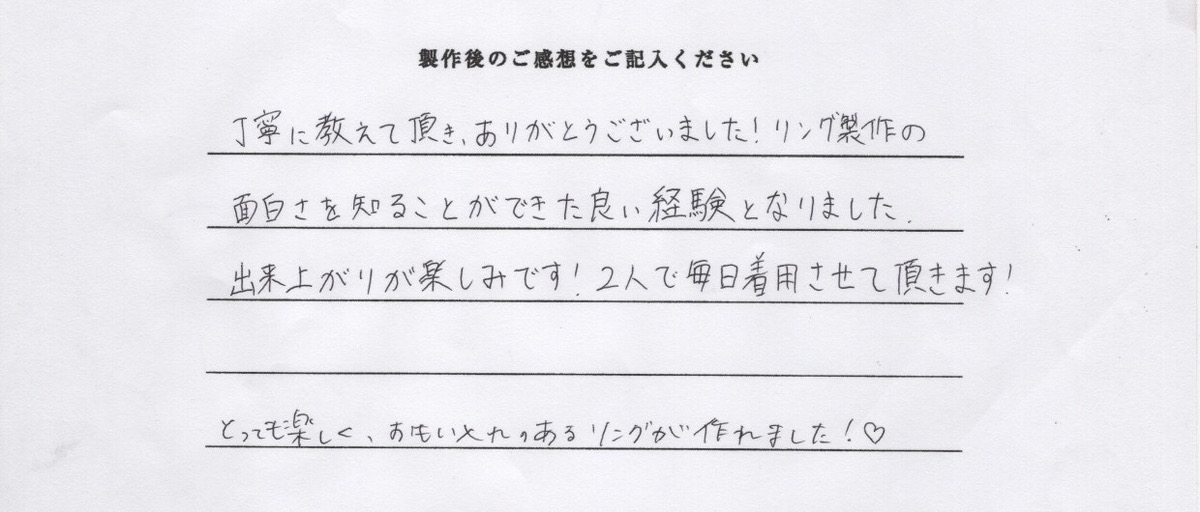 製作後のご感想をご記入ください
丁寧に教えて頂き、ありがとうございました!リング製作の
面白さを知ることができた良い経験となりました。
出来上がりが楽しみです!2人で毎日着用させて頂きます!
とっても楽しく、おもいいれのあるリングが作れました!♡